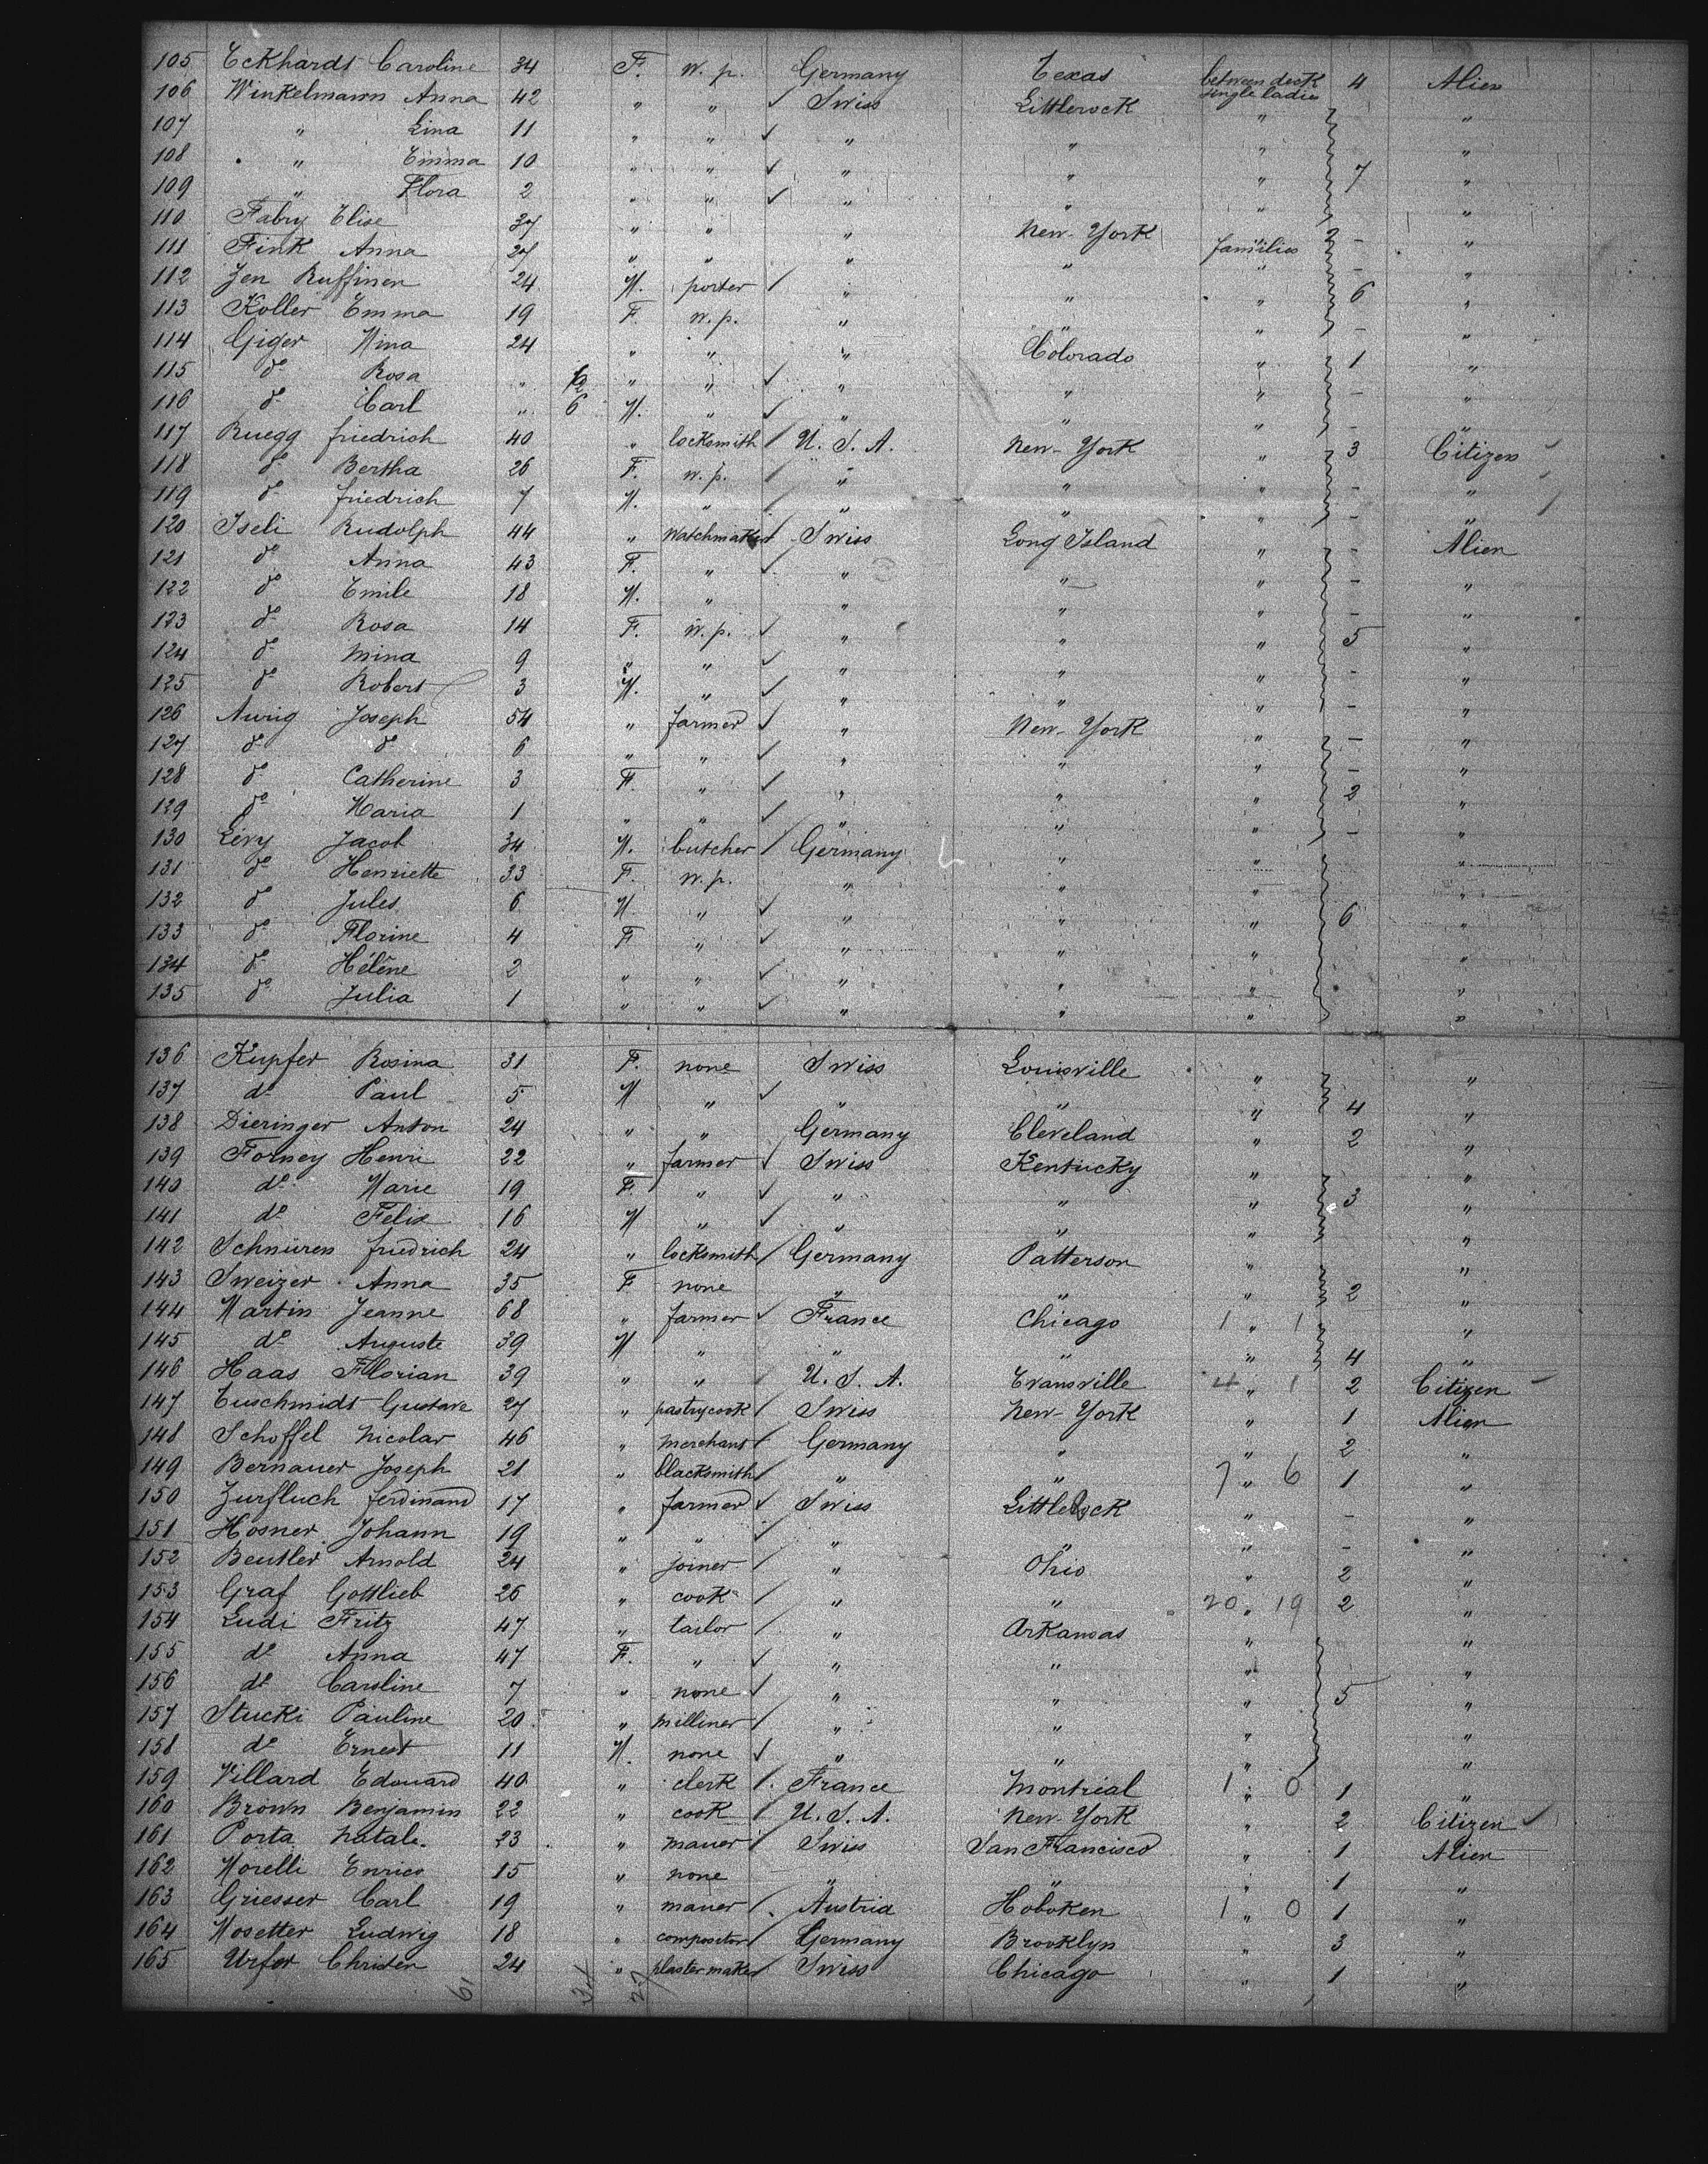 105 Eckhardt Caroline 34 F. w. p. Germany Texas between deck single ladies 4 Alien
106 Winkelmann Anna 42 " " ✓ Swiss Littlerock " "
107 " Lina 11 " " ✓ " " " "
108 " Emma 10 " " ✓ " " " 7 "
109 " Flora 2 " " ✓ " " " "
110 Fabry Elise 37 " " " New-York families - "
111 Fink Anna 27 " " " " " - "
112 Zen Ruffinen 24 M. porter / " " " 6 "
113 Koller Emma 19 F. w. p. " " " - "
114 Giger Mina 24 " " " Colorado " 1 "
115 do Rosa " " " ✓ " " " - "
116 do Carl " 6 M. " ✓ " " " - "
117 Ruegg friedrich 40 " locksmith / U. S. A. New-York " 3 Citizen
118 do Bertha 26 F. w. p. / " " " - "
119 do friedrich 7 M. " / " " " - "
120 Iseli Rudolph 44 " Watchmaker / Swiss Long Island " - Alien
121 do Anna 43 F. " ✓ " " " - "
122 do Emile 18 M. " " " " - "
123 do Rosa 14 F. w. p. ✓ " " " 5 "
124 do Mina 9 " " ✓ " " " - "
125 do Robert 3 M. " ✓ " " " - "
126 Aurig Joseph 54 " farmer ✓ " New-York " - "
127 do do 6 " " ✓ " " " - "
128 do Catherine 3 F. " ✓ " " " 2 "
129 do Maria 1 " " ✓ " " " - "
130 Levy Jacob 34 M. butcher / Germany " " "
131 do Henriette 33 F. w. p. " " " "
132 do Jules 6 M " ✓ " " " 6 "
133 do Florine 4 F " ✓ " " " "
134 do Hélène 2 " " ✓ " " " "
135 do Julia 1 " " ✓ " " " "
136 Kupfer Rosina 31 F. none Swiss Louisville " "
137 do Paul 5 M " ✓ " " " 4 "
138 Dieringer Anton 24 " " Germany Cleveland " 2 "
139 Forney Henri 22 " farmer ✓ Swiss Kentucky " "
140 do Marie 19 F. " ✓ " " " 3 "
141 do Felix 16 M " ✓ " " " "
142 Schnüren friedrich 24 " locksmith / Germany Patterson " "
143 Sweizer Anna 35 F none " " " 2 "
144 Martin Jeanne 68 " farmer ✓ France Chicago 1 " 1 "
145 do Auguste 39 M " " " " 4 "
146 Haas Florian 39 " " / U. S. A. Evansville 4 " 1 2 Citizen
147 Tuschmidt Gustave 27 " pastrycook / Swiss New-York " 1 Alien
148 Schoffel Nicolas 46 " Merchant / Germany " " 2 "
149 Bernauer Joseph 21 " blacksmith / " " 7 " 6 1 "
150 Zurfluch ferdinand 17 " farmer ✓ Swiss Littlerock " - "
151 Hosner Johann 19 " " ✓ " " " - "
152 Beutler Arnold 24 " joiner / " Ohio " 2 "
153 Graf Gottlieb 26 " cook / " " 20 " 19 2 "
154 Ludi Fritz 47 " tailor / " Arkansas " "
155 do Anna 47 F. " ✓ " " " "
156 do Caroline 7 " none ✓ " " " 5 "
157 Stucki Pauline 20 " Milliner / " " " "
158 do Ernest 11 M. none ✓ " " " "
159 Villard Edouard 40 " clerk / France Montréal 1 " 0 1 "
160 Brown Benjamin 22 " cook / U. S. A. New-York " 2 Citizen ✓
161 Porta Natale 23 " mauer / Swiss San Francisco " 1 Alien
162 Morelli Enrico 15 " none " " " 1 "
163 Griesser Carl 19 " mauer / Austria Hoboken 1 " 0 1 "
164 Mosetter Ludwig 18 " compositor / Germany Brooklyn " 3 "
165 Urfer Christen 24 " plaster maker / Swiss Chicago " 1 "
61 34 27